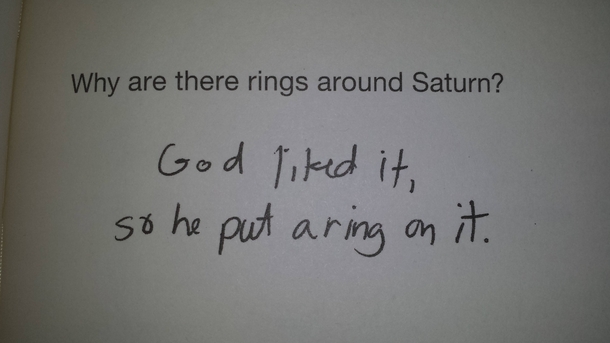 Why are there rings around Saturn?
God liked it,
so he put a ring on it.